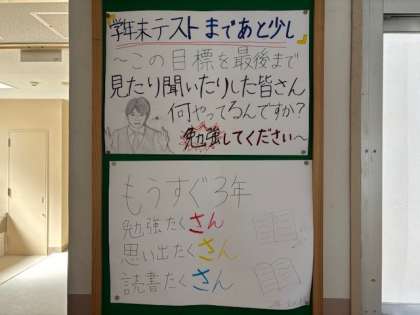 学年末テストまであと少し
～この目標を最後まで
見たり聞いたりした皆さん
何やってるんですか?
勉強してください～
もうすぐ3年
勉強たくさん
思い出たくさん
読書たくさん